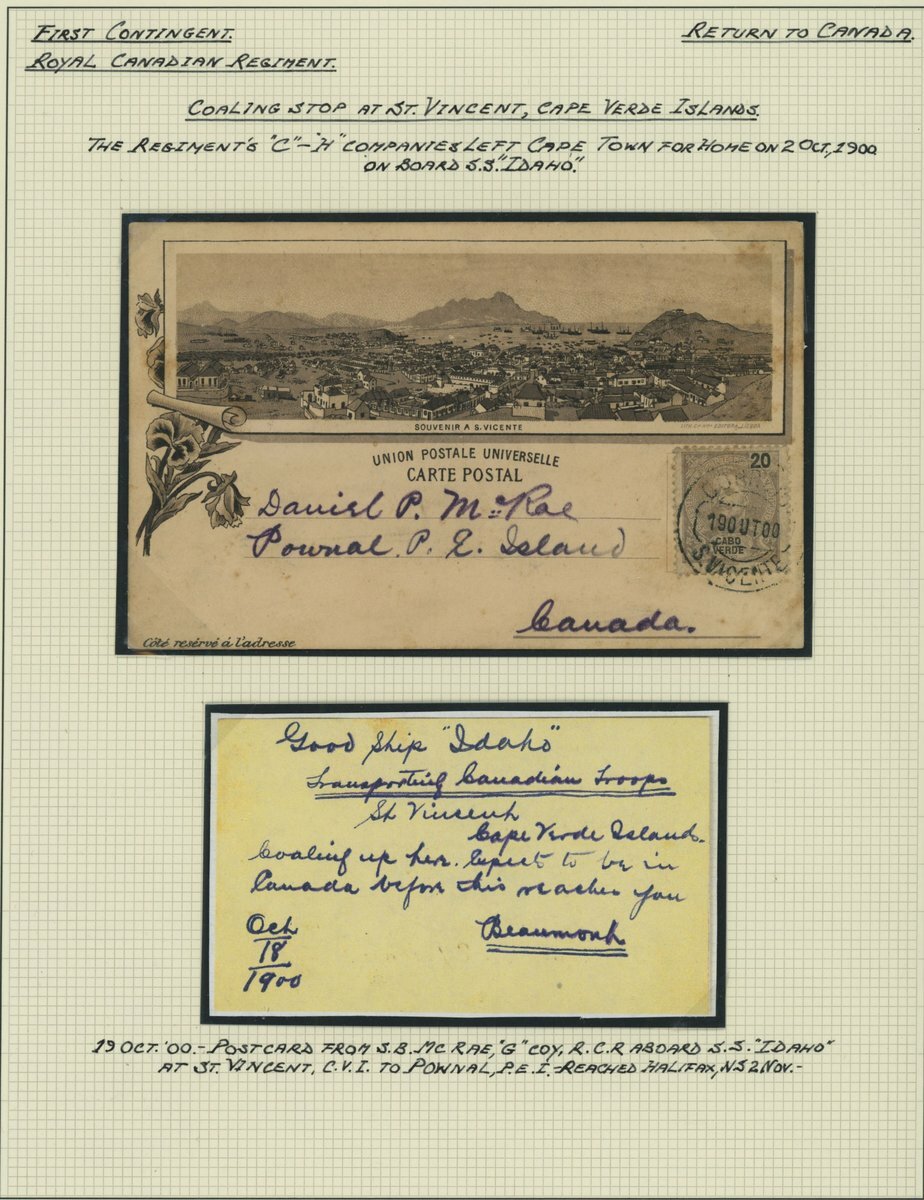 FIRST CONTINGENT.
RETURN TO CANADA.
ROYAL CANADIAN REGIMENT.
COALING STOP AT ST. VINCENT, CAPE VERDE ISLANDS.
THE REGIMENT'S "C"-"H" COMPANIES LEFT CAPE TOWN FOR HOME ON 2 OCT, 1900
ON BOARD S.S. "IDAHO".
SOUVENIR A S. VICENTE
UNION POSTALE UNIVERSELLE
CARTE POSTAL
20
19 OUT 00
CABO
VERDE
S. VICENTE
Daniel P. McRae
Pownal P. E. Island
Canada.
Côté resérvé á l'adresse
Good Ship "Idaho"
Transporting Canadian Troops
St Vincent
Cape Verde Islands.
Coaling up here. Expect to be in
Canada before this reaches you
Oct
18
1900
Beaumont
19 OCT. '00.- POSTCARD FROM S.B. MC RAE, "G" COY, R.C.R ABOARD S.S. "IDAHO"
AT ST. VINCENT, C.V.I. TO POWNAL, P.E.I. -REACHED HALIFAX, NS 2 NOV.-